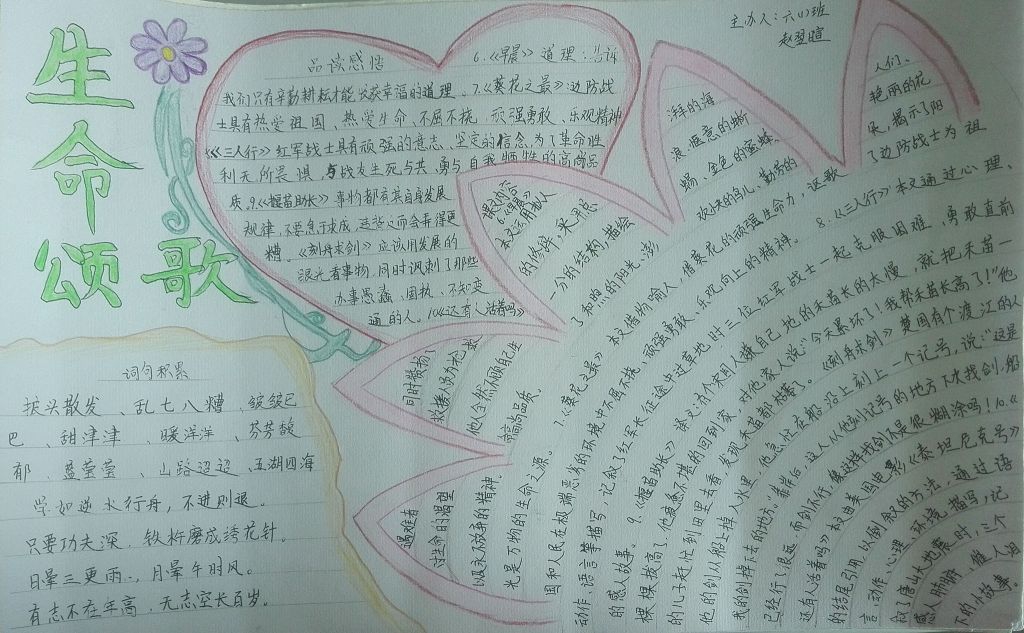 生命颂歌
主办人:六(1)班
赵翌暄
品读感悟
6.《早晨》道理:告诉
我们只有辛勤耕耘才能收获幸福的道理。7.《葵花之最》边防战
士具有热爱祖国、热爱生命、不屈不挠、顽强勇敢、乐观精神
《三人行》红军战士具有顽强的意志、坚定的信念,为了革命胜
利无所畏惧,与战友生死与共、勇与自我牺牲的高尚品
质。9.《揠苗助长》事物都有其自身发展
规律,不要急于求成,
会弄得更
糟。《刻舟求剑》应该用发展的
眼光看事物,同时讽刺了那些
办事愚蠢、固执、不知变
通的人。10.《还有人活着吗》
词句积累
披头散发、乱七八糟、皱皱巴
巴、甜津津、暖洋洋、芬芳馥
郁、蓝莹莹、山路迢迢、五湖四海
学如逆水行舟,不进则退。
只要功夫深,铁杵磨成绣花针。
日晕三更雨,月晕午时风。
有志不在年高,无志空长百岁。
课文内容
6.《早晨》
本文运用拟人
的修辞,采用总
分的结构,描绘
了和煦的阳光、澎
湃的海
浪、惬意的蜥
蜴、金色的蜜蜂、
欢快的鸟儿、勤劳的
人们。
同时赞扬
救援人员为抢救
他人全然不顾自己生
高尚品质。
遇难者
对生命的渴望
以及永不放弃的精神
光是万物的生命之源。
7.《葵花之最》本文借物喻人,借葵花的顽强生命力,讴歌
了边防战士为祖
国和人民在极端恶劣的环境中不屈不挠,顽强勇敢、乐观向上的精神。
艳丽的花
朵,揭示了阳
8.《三人行》本文通过心理、
动作、语言等描写,记叙了红军长征途中过草地时三位红军战士一起克服困难,勇敢直前
的感人故事。9.《揠苗助长》课文讲个宋国人嫌自己地的禾苗长的太慢,就把禾苗一
棵棵拔高了,他疲惫不堪的回到家,对他家人说:“今天累坏了!我帮禾苗长高了!”他
的儿子赶忙到田里去看,发现禾苗都枯萎了。《刻舟求剑》楚国有个渡江的人
他的剑从船上掉入水里,他急忙在船沿上刻上一个记号,说:“这是
我的剑掉下去的地方。”靠岸后,这人从他刻记号的地方下水找剑,船
已经行了很远,而剑不行,像这样找剑不是很糊涂吗!10.《
还有人活着吗》本文由美国电影《泰坦尼克号》
的结尾引用,以倒叙的方法,通过语
言、动作、心理、环境描写,记
叙了唐山大地震时,三个
感人肺腑,催人泪
下的小故事。